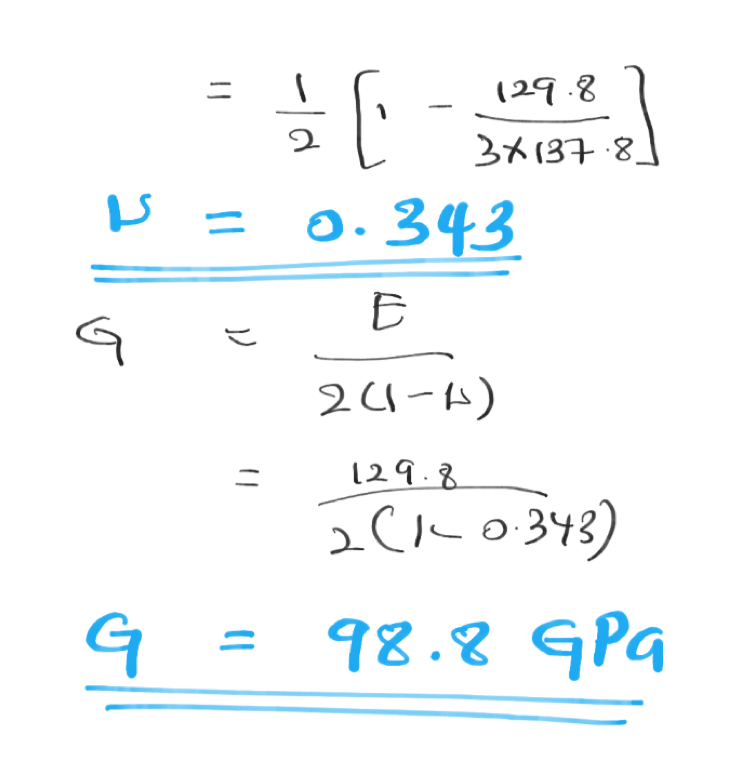 = 1/2 [1 - 129.8/(3×137.8)]
ν = 0.343
G = E/(2(1-ν))
= 129.8/(2(1-0.343))
G = 98.8 GPa